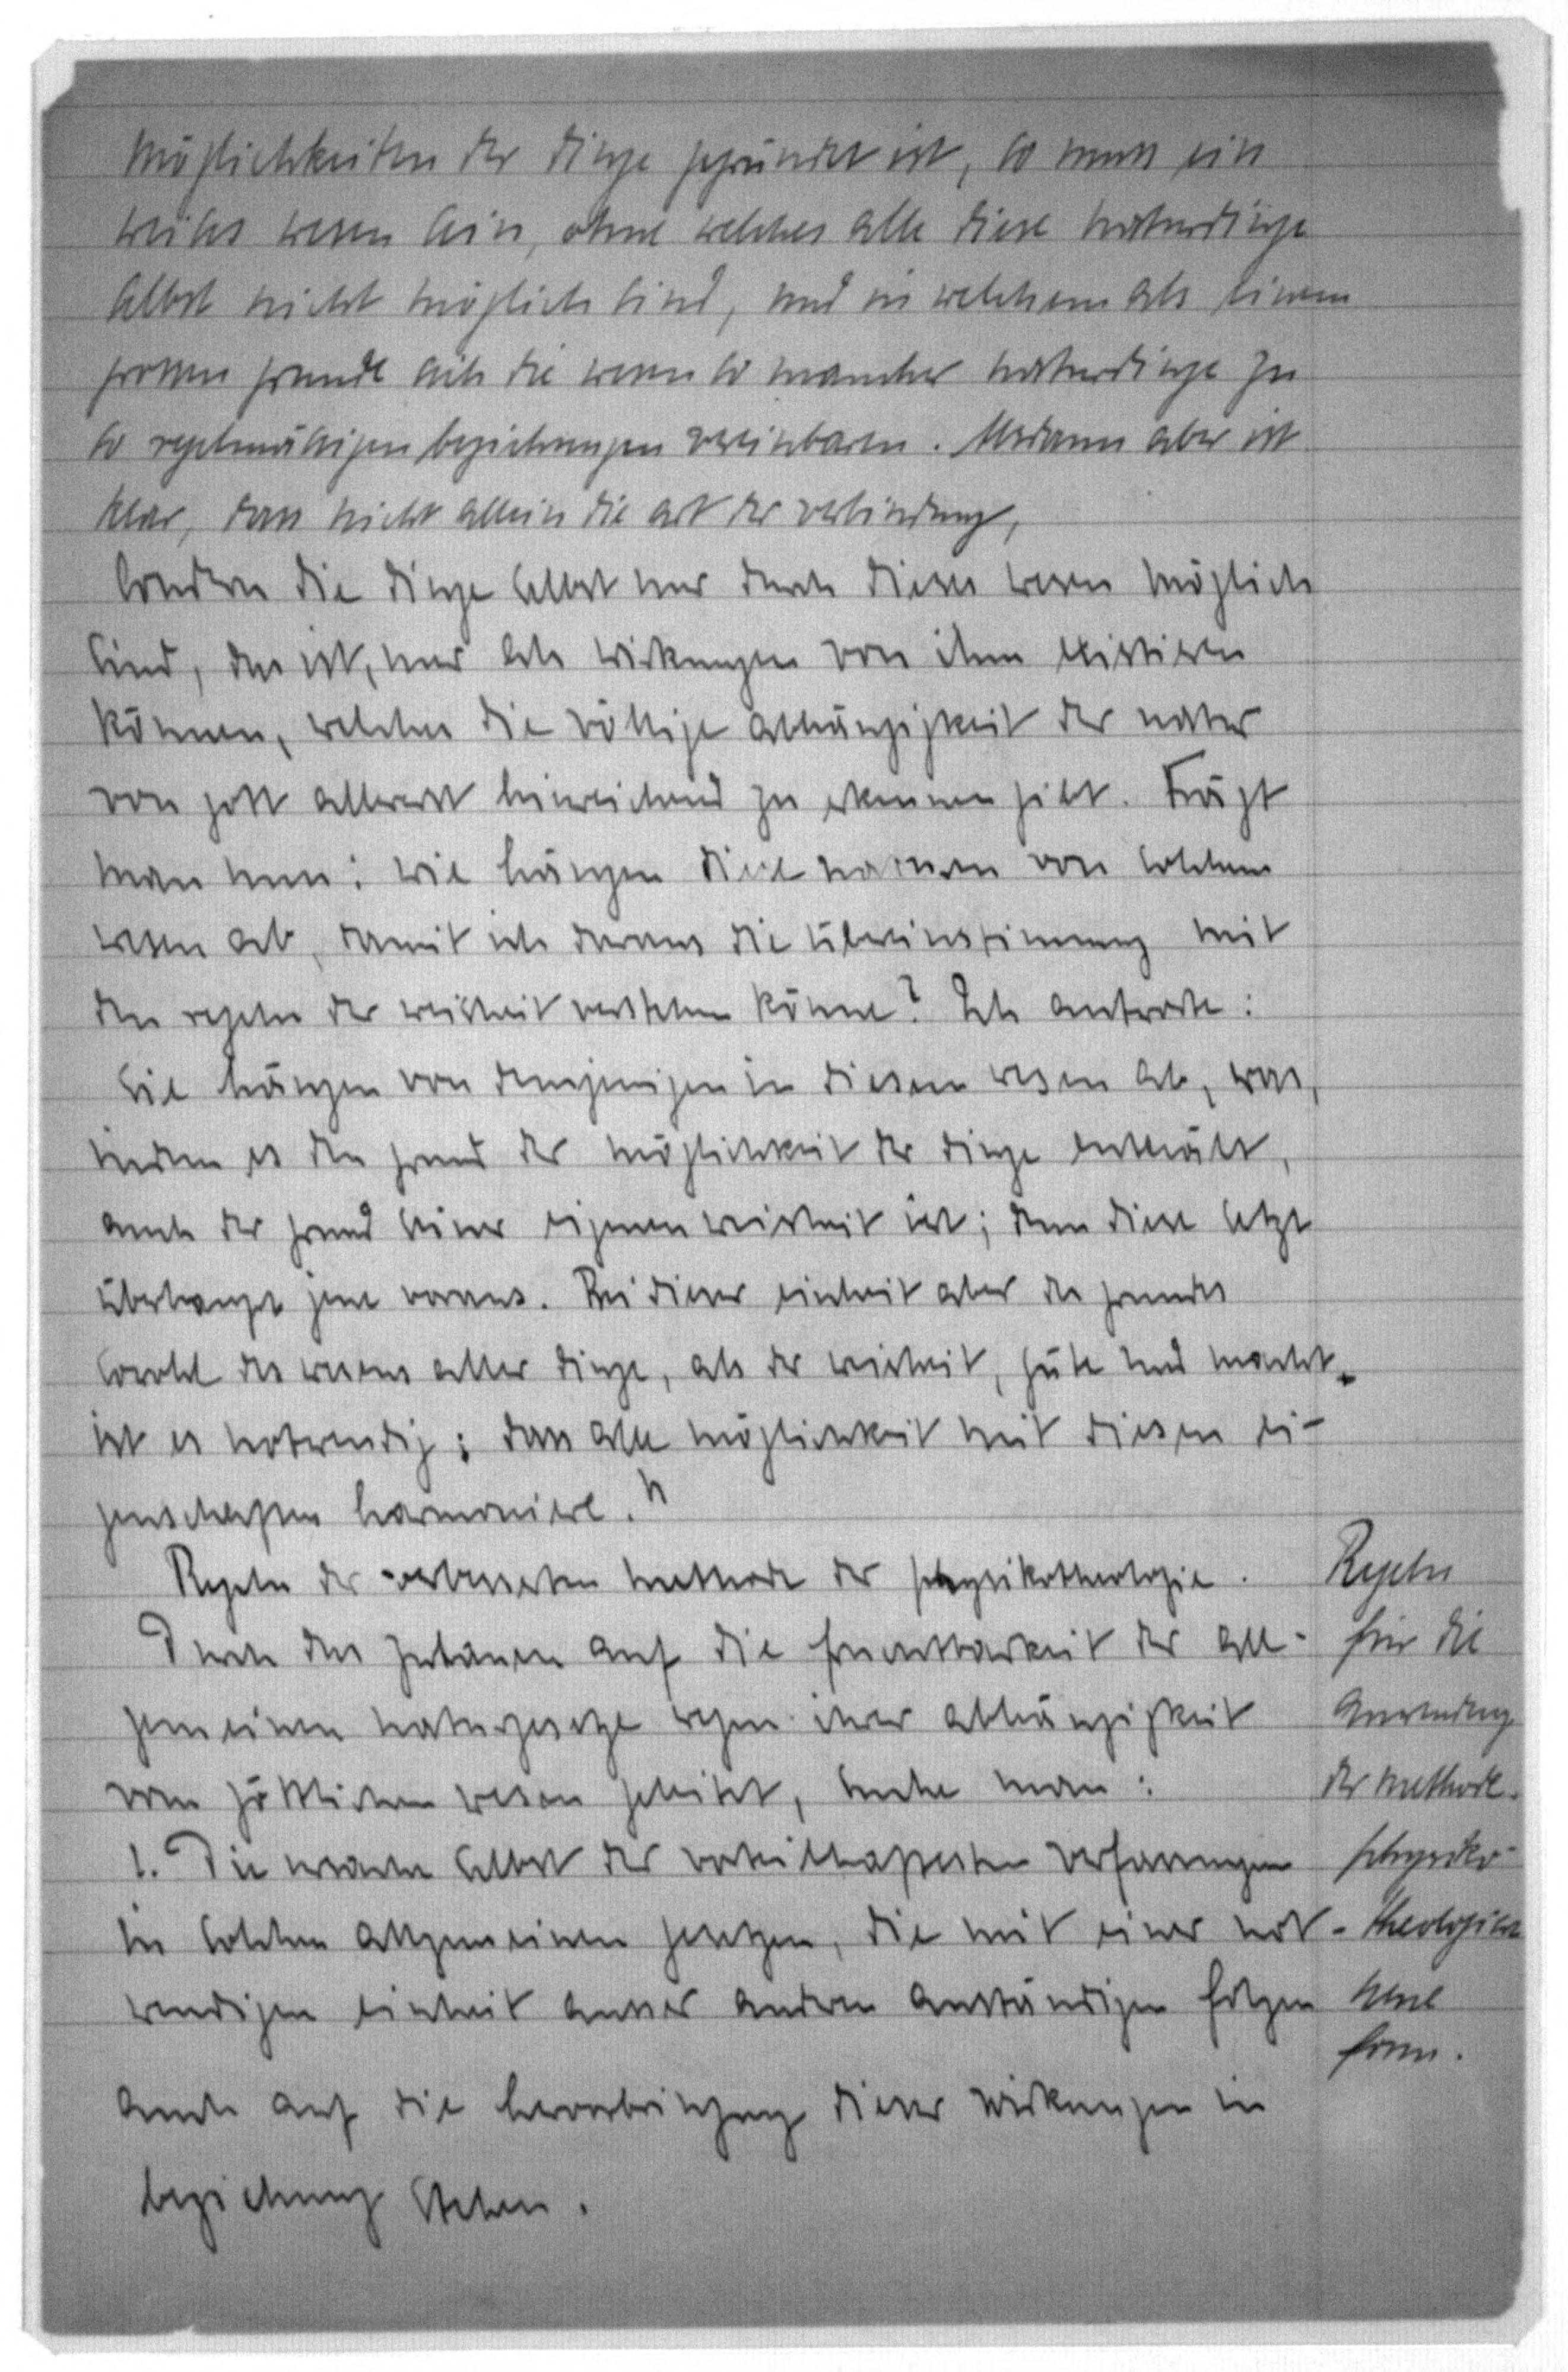 möglichkeiten der dinge gegründet ist, so muss ein
weises wesen sein, ohne welches alle diese naturdinge
selbst nicht möglich sind, und in welchem als einem
grossen grunde sich die wesen so mancher naturdinge zu
so regelmässigen beziehungen vereinbaren. Alsdann aber ist
klar, dass nicht allein die art der verbindung,
sondern die dinge selbst nur durch dieses wesen möglich
sind, das ist, nur als wirkungen von ihm existieren
können, welches die völlige abhängigkeit der natur
von gott allererst hinreichend zu erkennen gibt. Frägt
man nun: wie hängen diese naturen von solchem
wesen ab, damit ich daraus die übereinstimmung mit
den regeln der weisheit verstehen könne? Ich antworte:
sie hängen von demjenigen in diesem wesen ab, was,
indem es den grund der möglichkeit der dinge enthält,
auch der grund seiner eigenen weisheit ist; denn diese setzt
überhaupt jene voraus. Bei dieser einheit aber des grundes
sowohl des wesens aller dinge, als der weisheit, güte und macht,
ist es notwendig: dass alle möglichkeit mit diesen ei-
genschaften harmoniere."
Regeln der verbesserten methode der physikotheologie.
Durch das zutrauen auf die fruchtbarkeit der all-
gemeinen naturgesetze wegen ihrer abhängigkeit
vom göttlichen wesen geleitet, suche man:
1. Die ursache selbst der vorteilhaftesten verfassungen
in solchen allgemeinen gesetzen, die mit einer not-
wendigen einheit ausser andren anständigen folgen
auch auf die hervorbringung dieser wirkungen in
beziehung stehen.
Regeln
für die
Anwendung
der methode.
physiko-
theologischen
neue
form.